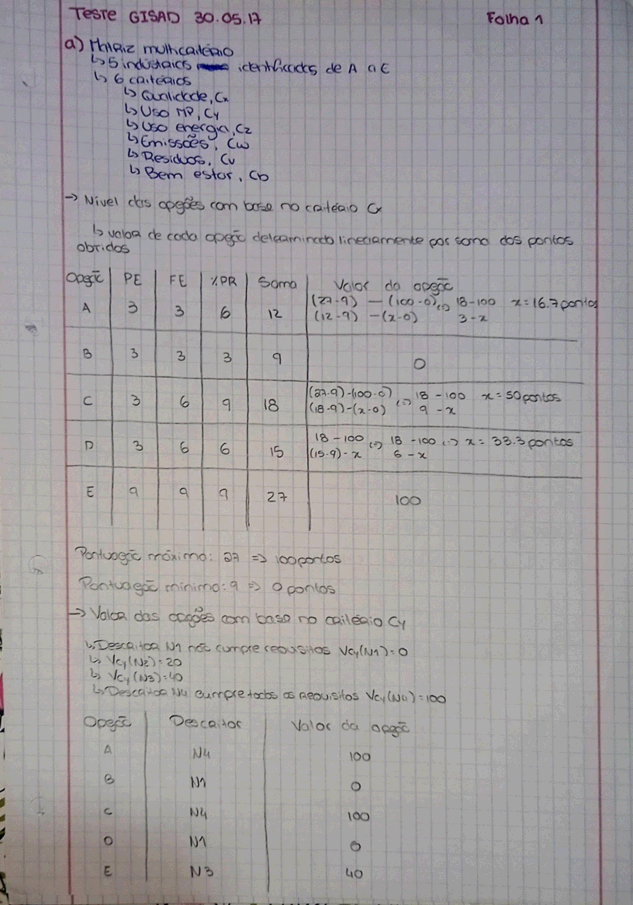 Teste GISAD 30.05.17 Folha 1
a) Matriz multicritério
↳ 5 indústrias identificadas de A a E
↳ 6 critérios
↳ Qualidade, Cx
↳ Uso MP, Cy
↳ Uso energia, Cz
↳ Emissões, Cw
↳ Resíduos, Cv
↳ Bem estar, Cb
→ Nível das opções com base no critério Cx
↳ valor de cada opção determinado linearmente por soma dos pontos
obtidos
Opção PE FE %PR Soma Valor da opção
A 3 3 6 12 (27-9) - (100-0) ⇔ 18-100 x = 16.7 pontos
(12-9) - (x-0) 3-x
B 3 3 3 9 0
C 3 6 9 18 (27-9)-(100-0) ⇔ 18-100 x = 50 pontos
(18-9)-(x-0) 9-x
D 3 6 6 15 18-100 ⇔ 18-100 ⇔ x = 33.3 pontos
(15-9)-x 6-x
E 9 9 9 27 100
Pontuação máxima: 27 => 100 pontos
Pontuação mínima: 9 => 0 pontos
→ Valor das opções com base no critério Cy
↳ Descritor N1 não cumpre requisitos Vcy(N1)=0
↳ Vcy(N2)=20
↳ Vcy(N3)=40
↳ Descritor N4 cumpre todos os requisitos Vcy(N4)=100
Opção Descritor Valor da opção
A N4 100
B N1 0
C N4 100
D N1 0
E N3 40